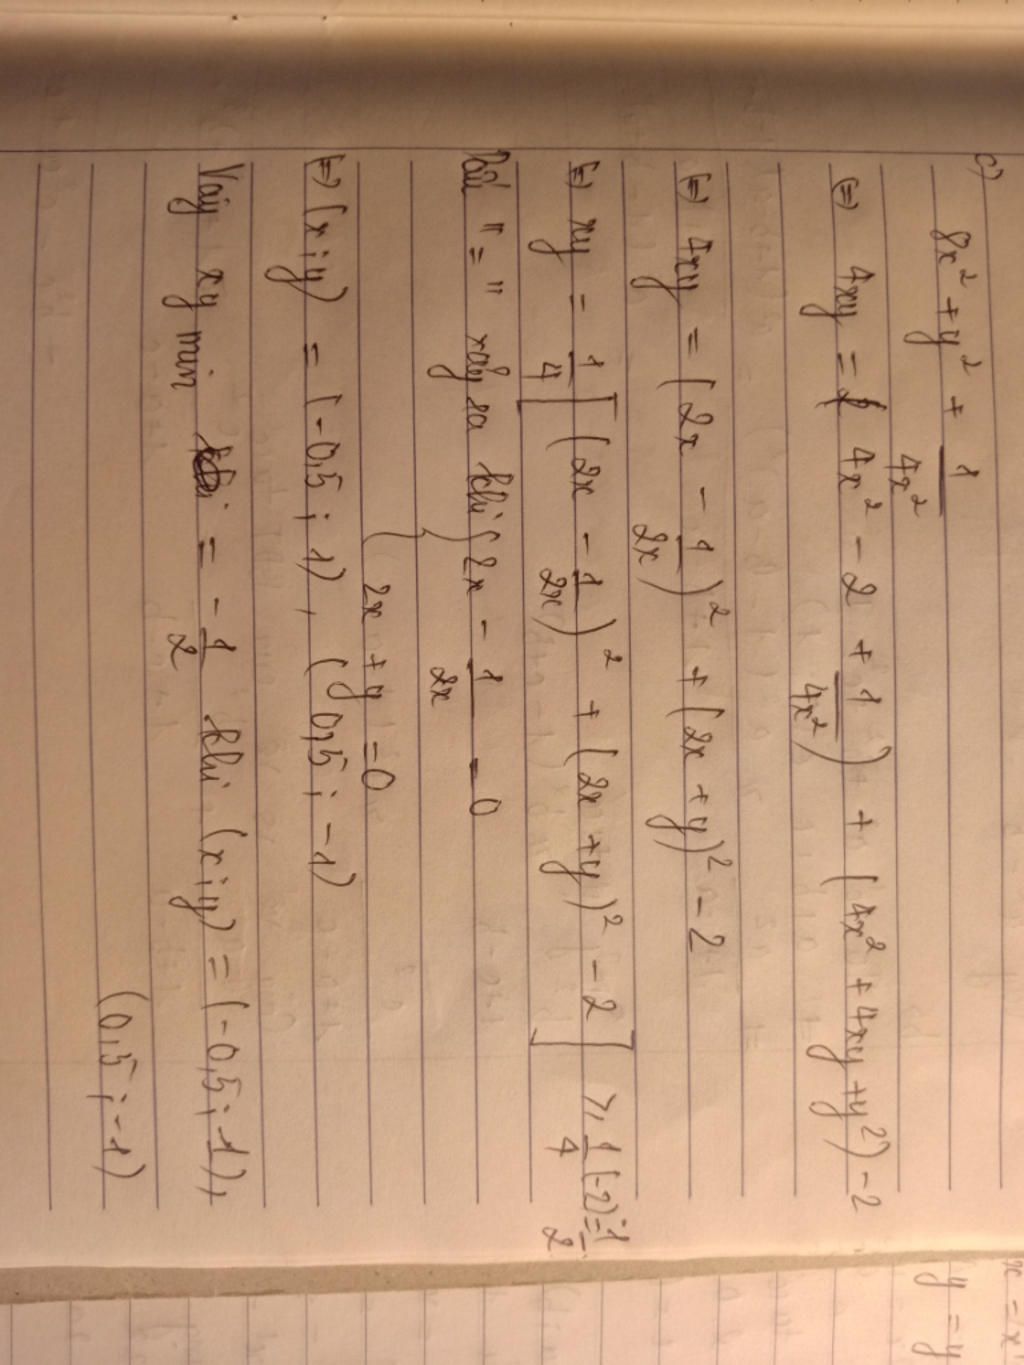 c) 8x² + y² + 1/4x²
(=) 4xy = ( 4x² - 2 + 1/4x² ) + ( 4x² + 4xy + y² ) - 2
(=) 4xy = ( 2x - 1/2x )² + ( 2x + y )² - 2
(=) xy = 1/4 [ ( 2x - 1/2x )² + ( 2x + y )² - 2 ] ⩾ 1/4 (-2) = -1/2
Dấu " = " xảy ra khi { 2x - 1/2x = 0
2x + y = 0
(=) (x ; y) = (-0,5 ; 1), ( 0,5 ; -1)
Vậy xy min = - 1/2 khi (x ; y) = (-0,5 ; 1),
(0,5 ; -1)
y = y